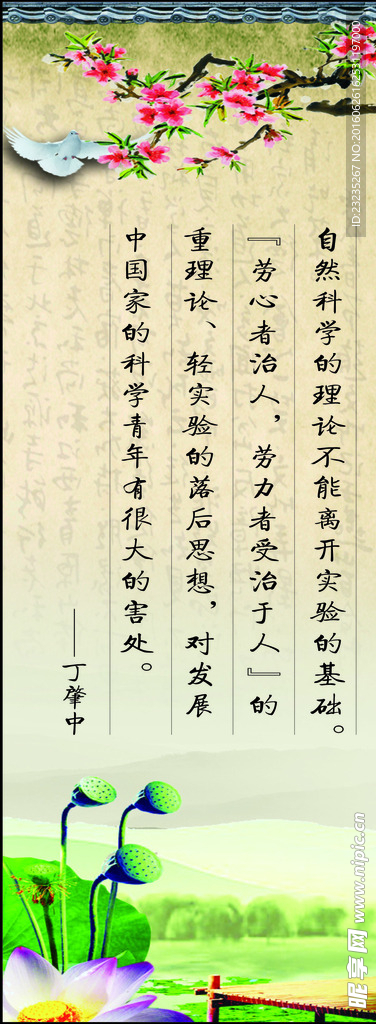 自然科学的理论不能离开实验的基础。
『劳心者治人，劳力者受治于人』的
重理论、轻实验的落后思想，对发展
中国家的科学青年有很大的害处。
——丁肇中
ID:23235267 NO:20160626162531197000
昵享网 www.nipic.cn